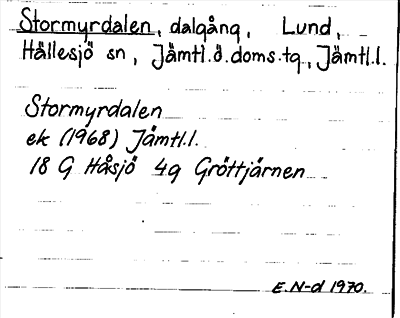 Stormyrdalen, dalgång, Lund,
Hällesjö sn, Jämtl.ö.doms.tg, Jämtl.l.
Stormyrdalen
ek (1968) Jämtl.l.
18 G Håsjö 4g Gröttjärnen
E.N-d 1970.